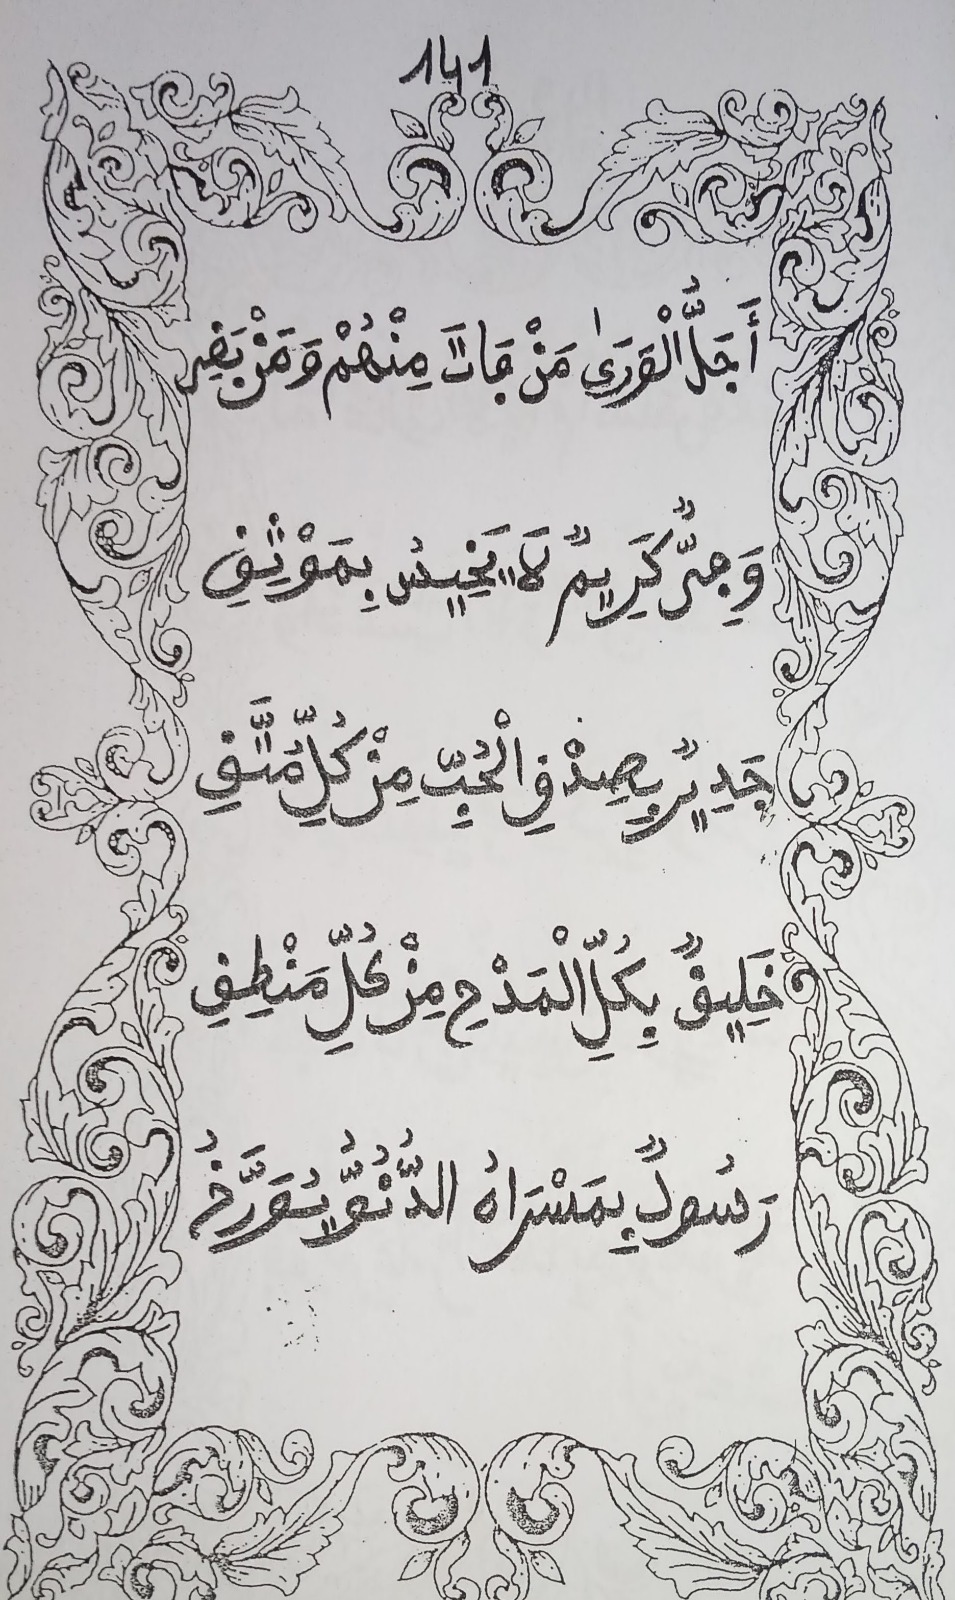 141
أَجَلُّ الْوَرَىٰ مَنْ فَاتَ مِنْهُمْ وَمَنْ بَقِي
وَفِيٌّ كَرِيمٌ لَا يَخِيسُ بِمَوْثِقِ
جَدِيرٌ بِصِدْقِ الْحُبِّ مِنْ كُلِّ مُتَّقِ
خَلِيقٌ بِكُلِّ الْمَدْحِ مِنْ كُلِّ مَنْطِقِ
رَسُولٌ بِمَسْرَاهُ الدُّنُوُّ يُوَرَّخُ